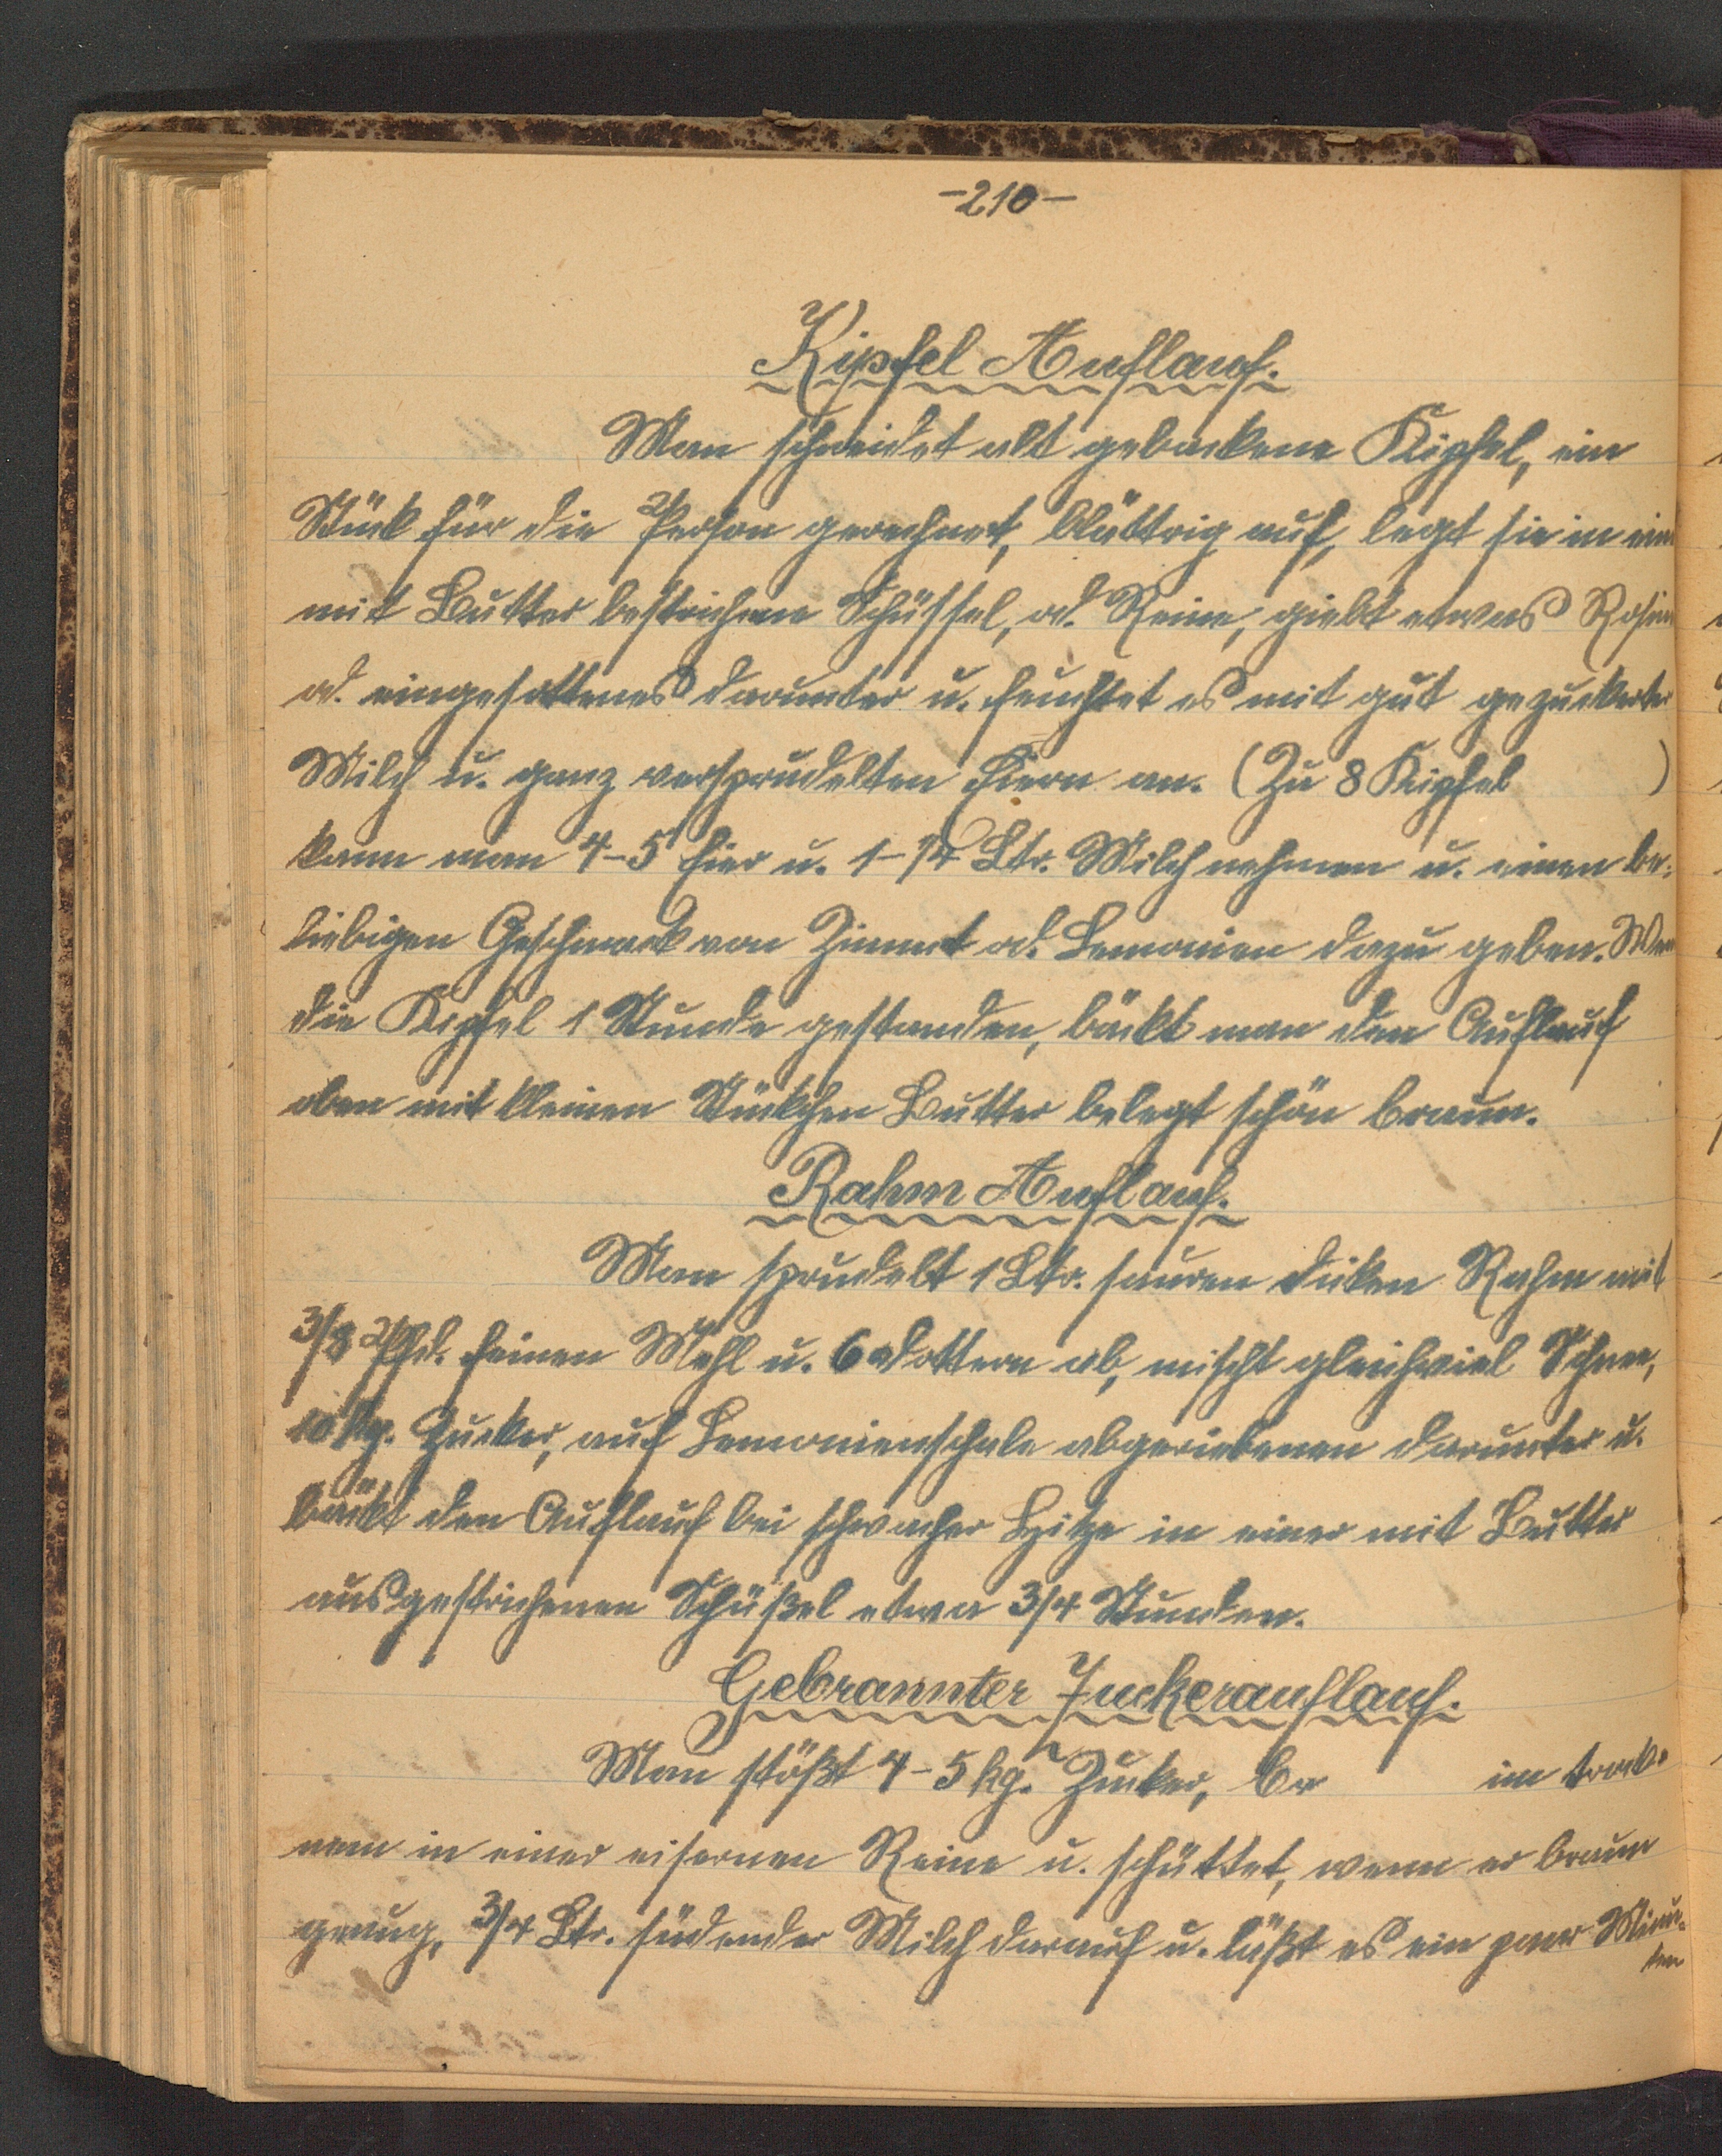 -210-
Kipfel Auflauf.
Man schneidet alt gebackene Kipfel, ein
Stück für die Person gerechnet, blättrig auf, legt sie in eine
mit Butter bestrichene Schüssel, od. Reine, giebt etwas Rosinen
od. eingesottenes darunter u. feuchtet es mit gut gezuckerter
Milch u. ganz versprudelten Eiern an. (Zu 8 Kipfel )
kann man 4-5 Eier u. 1-1/4 Ltr. Milch nehmen u. einen be-
liebigen Geschmack von Zimmt od. Lemonien dazu geben. Wenn
die Kipfel 1 Stunde gestanden, bäckt man den Auflauf
oben mit kleinen Stückchen Butter belegt schön braun.
Rahm Auflauf.
Man sprudelt 1 Ltr. sauren dicken Rahm mit
3/8 Pfd. feinen Mehl u. 6 dottern ab, mischt gleichviel Schnee,
10 kg. Zucker, auf Lemonienschale abgeriebenen darunter u.
bäckt den Auflauf bei schwacher Hitze in einer mit Butter
ausgestrichenen Schüßel etwa 3/4 Stunden.
Gebrannter Zuckerauflauf.
Man stößt 4-5 kg. Zucker, im trock-
nem in einer eisernen Reine u. schüttet, wenn er braun
genug, 3/4 Ltr. südender Milch darauf u. läßt es ein paar Minu-
ten